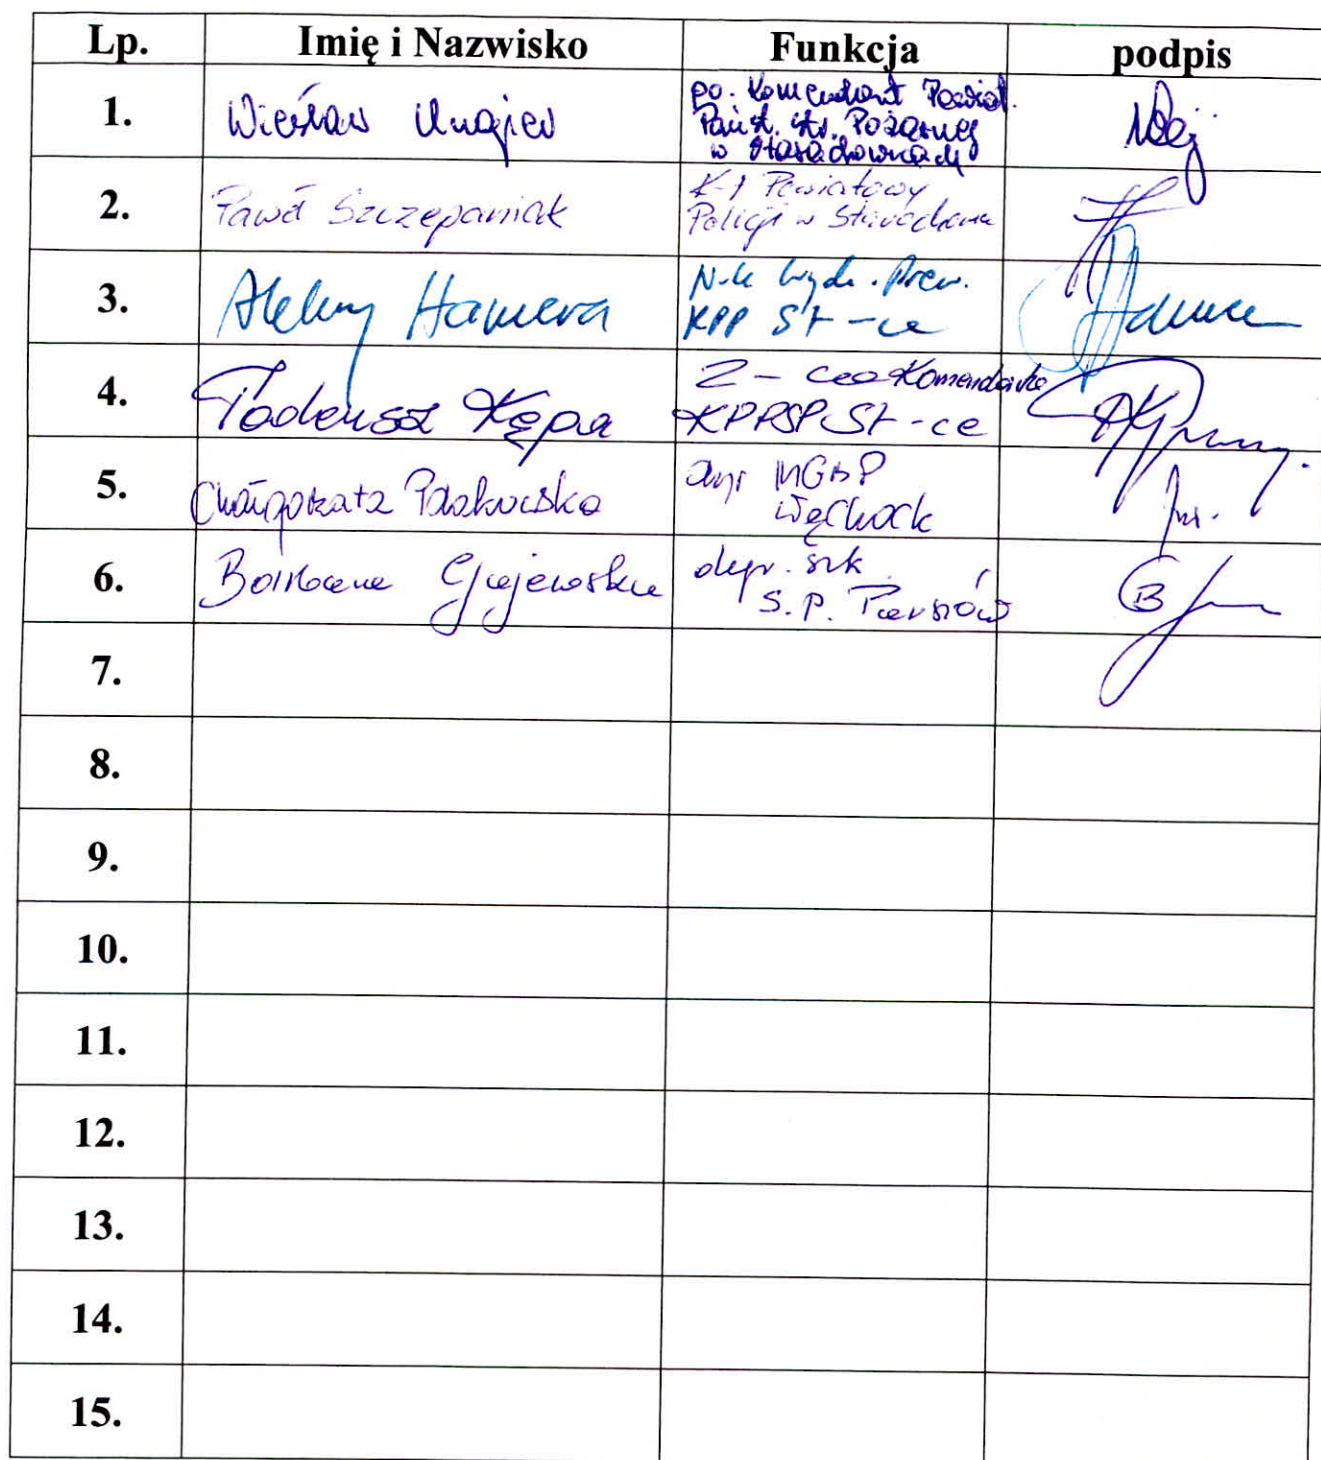 Lp. Imię i Nazwisko Funkcja podpis
1. Wiesław po. Komendant Powiat.
Państ. Str. Pożarnej
w Starachowicach
2. Paweł Szczepaniak K-t Powiatowy
Policji w
3. Hamera N-k Wydz. Prew.
KPP ST-ce
4. Tadeusz Kępa Z-ca Komendanta
KPPSP ST-ce
5. Małgorzata dyr MGBP
Wąchock
6. Gajewska dyr. szk
S.P. Parszów
7.
8.
9.
10.
11.
12.
13.
14.
15.